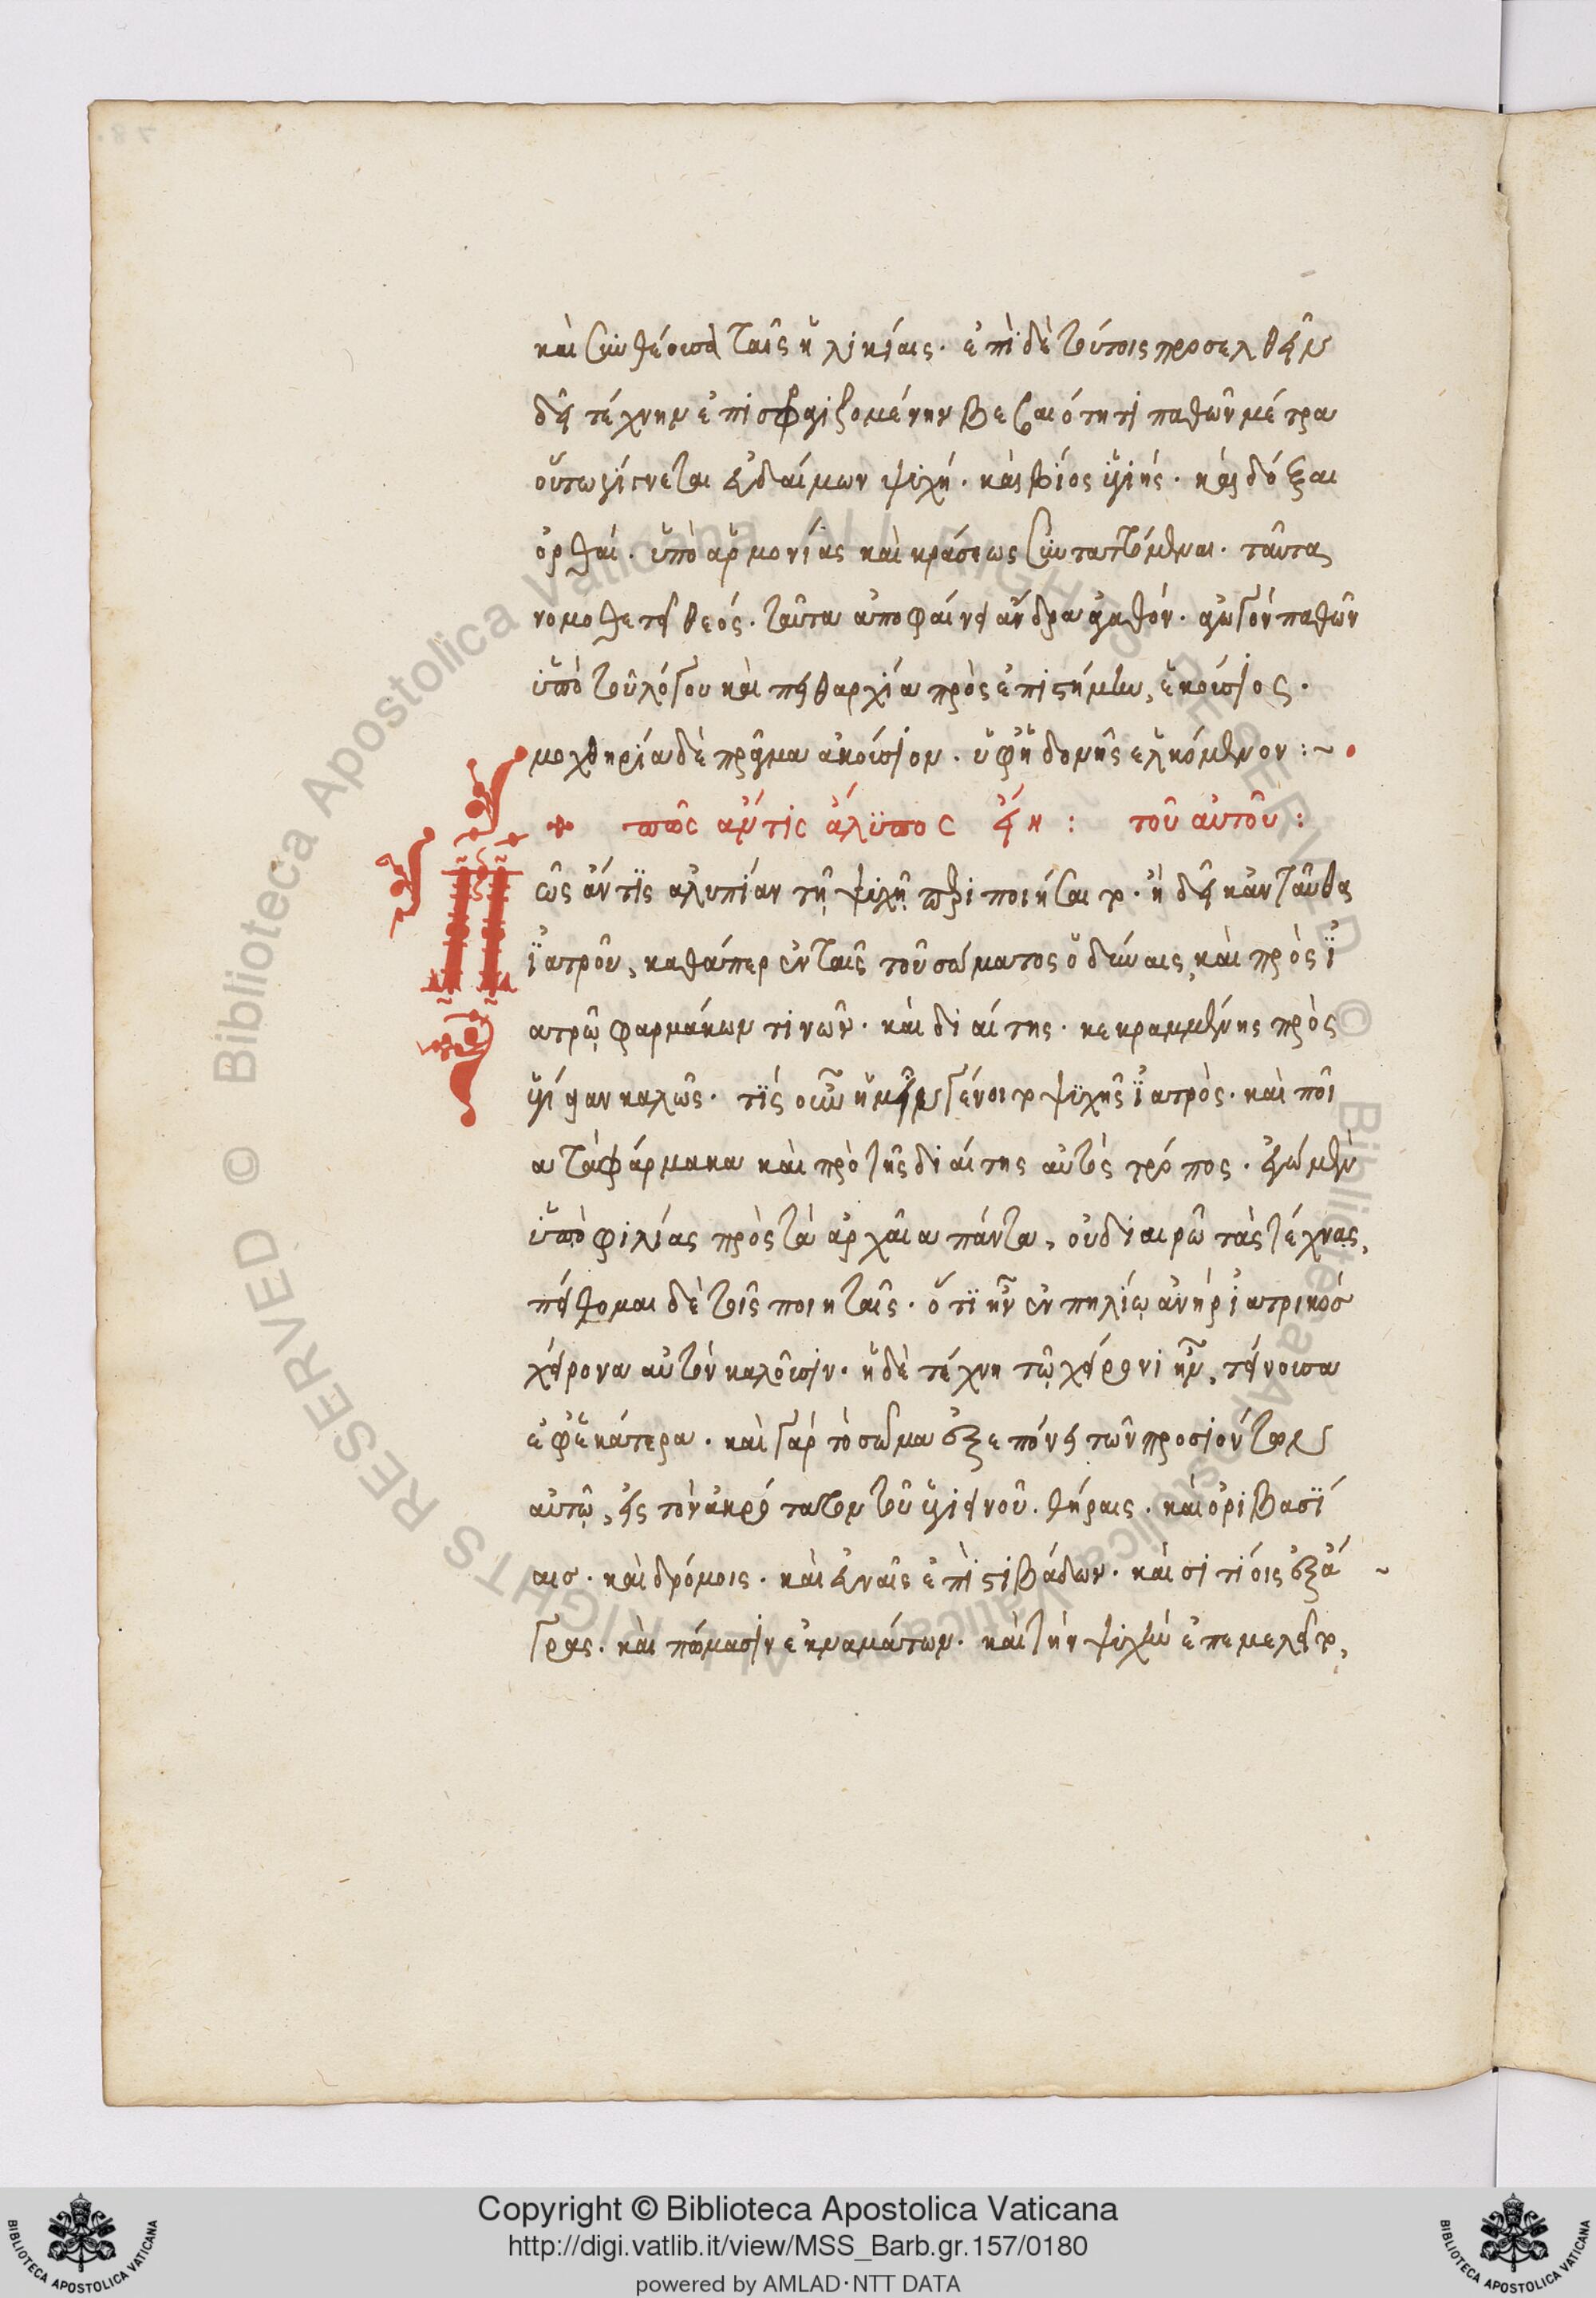 καὶ συνθέουσα ταῖς ἡλικίαις. ἐπὶ δὲ τούτοις προσελθεῖν
δεῖ τέχνην ἐπισφραγιζομένην βεβαιότητι παθῶν μέτρα
οὕτω γίγνεται εὐδαίμων ψυχή. καὶ βίος ὑγιής. καὶ δόξαι
ὀρθαί. ὑπὸ ἁρμονίας καὶ κράσεως συνταττόμεναι. ταῦτα
νομοθετεῖ θεός. ταῦτα ἀποφαίνει ἄνδρα ἀγαθόν. ἀγωγὸν παθῶν
ὑπὸ τοῦ λόγου καὶ πειθαρχία πρὸς ἐπιστήμην, ἑκούσιος.
μοχθηρία δὲ πρᾶγμα ἀκούσιον. ὑφ' ἡδονῆς ἑλκόμενον :~
πῶς ἄν τις ἄλυπος εἴη : τοῦ αὐτοῦ :
Πῶς ἄν τις ἀλυπίαν τῇ ψυχῇ περιποιήσαιτο. ἢ δεῖ κἀνταῦθα
ἰατροῦ, καθάπερ ἐν ταῖς τοῦ σώματος ὀδύναις, καὶ πρὸς ἰ
ατρῷ φαρμάκων τινῶν. καὶ διαίτης. κεκραμμένης πρὸς
ὑγίειαν καλῶς. τίς οὖν ἡμῖν γένοιτο ψυχῆς ἰατρὸς. καὶ ποῖ
α τὰ φάρμακα καὶ πρὸ τῆς διαίτης αὐτὸς τρόπος. ἐγὼ μὲν
ὑπὸ φιλίας πρὸς τὰ ἀρχαῖα πάντα, οὐ διαιρῶ τὰς τέχνας,
πείθομαι δὲ τοῖς ποιηταῖς. ὅτι ἦν ἐν πηλίῳ ἀνὴρ ἰατρικός
χείρονα αὐτὸν καλοῦσιν. ἡ δὲ τέχνη τῷ χείρονι ἦν, τείνουσα
ἐφ' ἑκάτερα. καὶ γὰρ τὸ σῶμα ἐξεπόνει τῶν προσιόντων
αὐτῷ, εἰς τὸν ἀκρότατον τοῦ ὑγιεινοῦ. θήραις. καὶ ὀριβασί
αις. καὶ δρόμοις. καὶ εὐναῖς ἐπὶ στιβάδων. καὶ σιτίοις ἐξ ἄ
γρας. καὶ πώμασιν ἐκ ναμάτων. καὶ τὴν ψυχὴν ἐπεμελεῖτο,
Copyright © Biblioteca Apostolica Vaticana
http://digi.vatlib.it/view/MSS_Barb.gr.157/0180
powered by AMLAD·NTT DATA